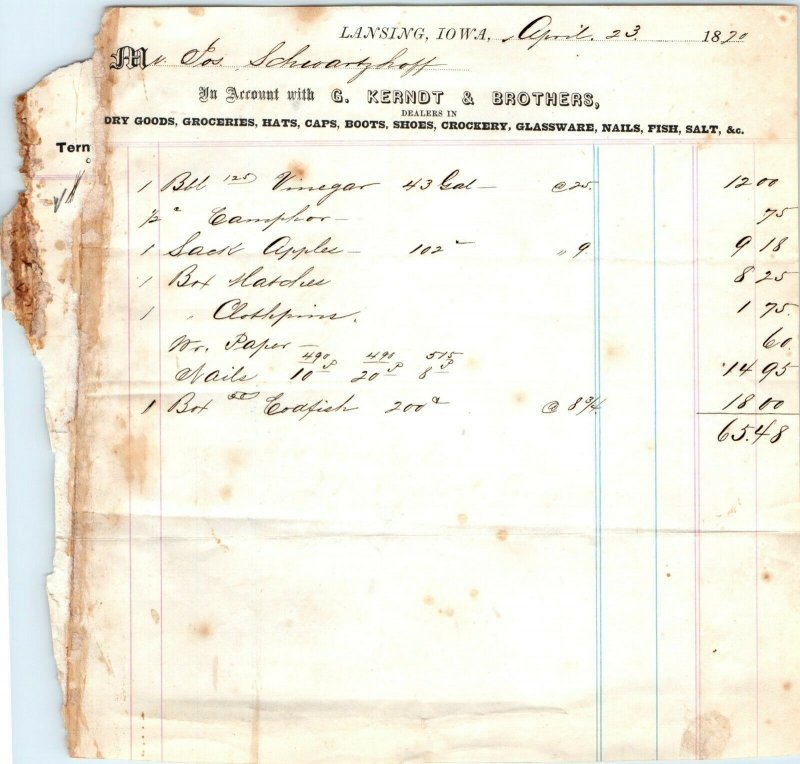 LANSING, IOWA, April. 23 1870
Mr. Jos. Schwartzhoff
In Account with G. KERNDT & BROTHERS,
DEALERS IN
DRY GOODS, GROCERIES, HATS, CAPS, BOOTS, SHOES, CROCKERY, GLASSWARE, NAILS, FISH, SALT, &c.
Tern
1 Bbl 125 Vinegar 43 Gal — @ 25. 12 00
1/2 " Camphor — 75
1 Sack Apples — 102 " 9. 9 18
1 Box Matches 8 25
1 " Clothpins. 1 75.
Wr. Paper — 60.
Nails 10 4.90 20 4.90 8 5.15 14 95
1 Box Codfish 200 @ 8 3/4 18 00
65.48